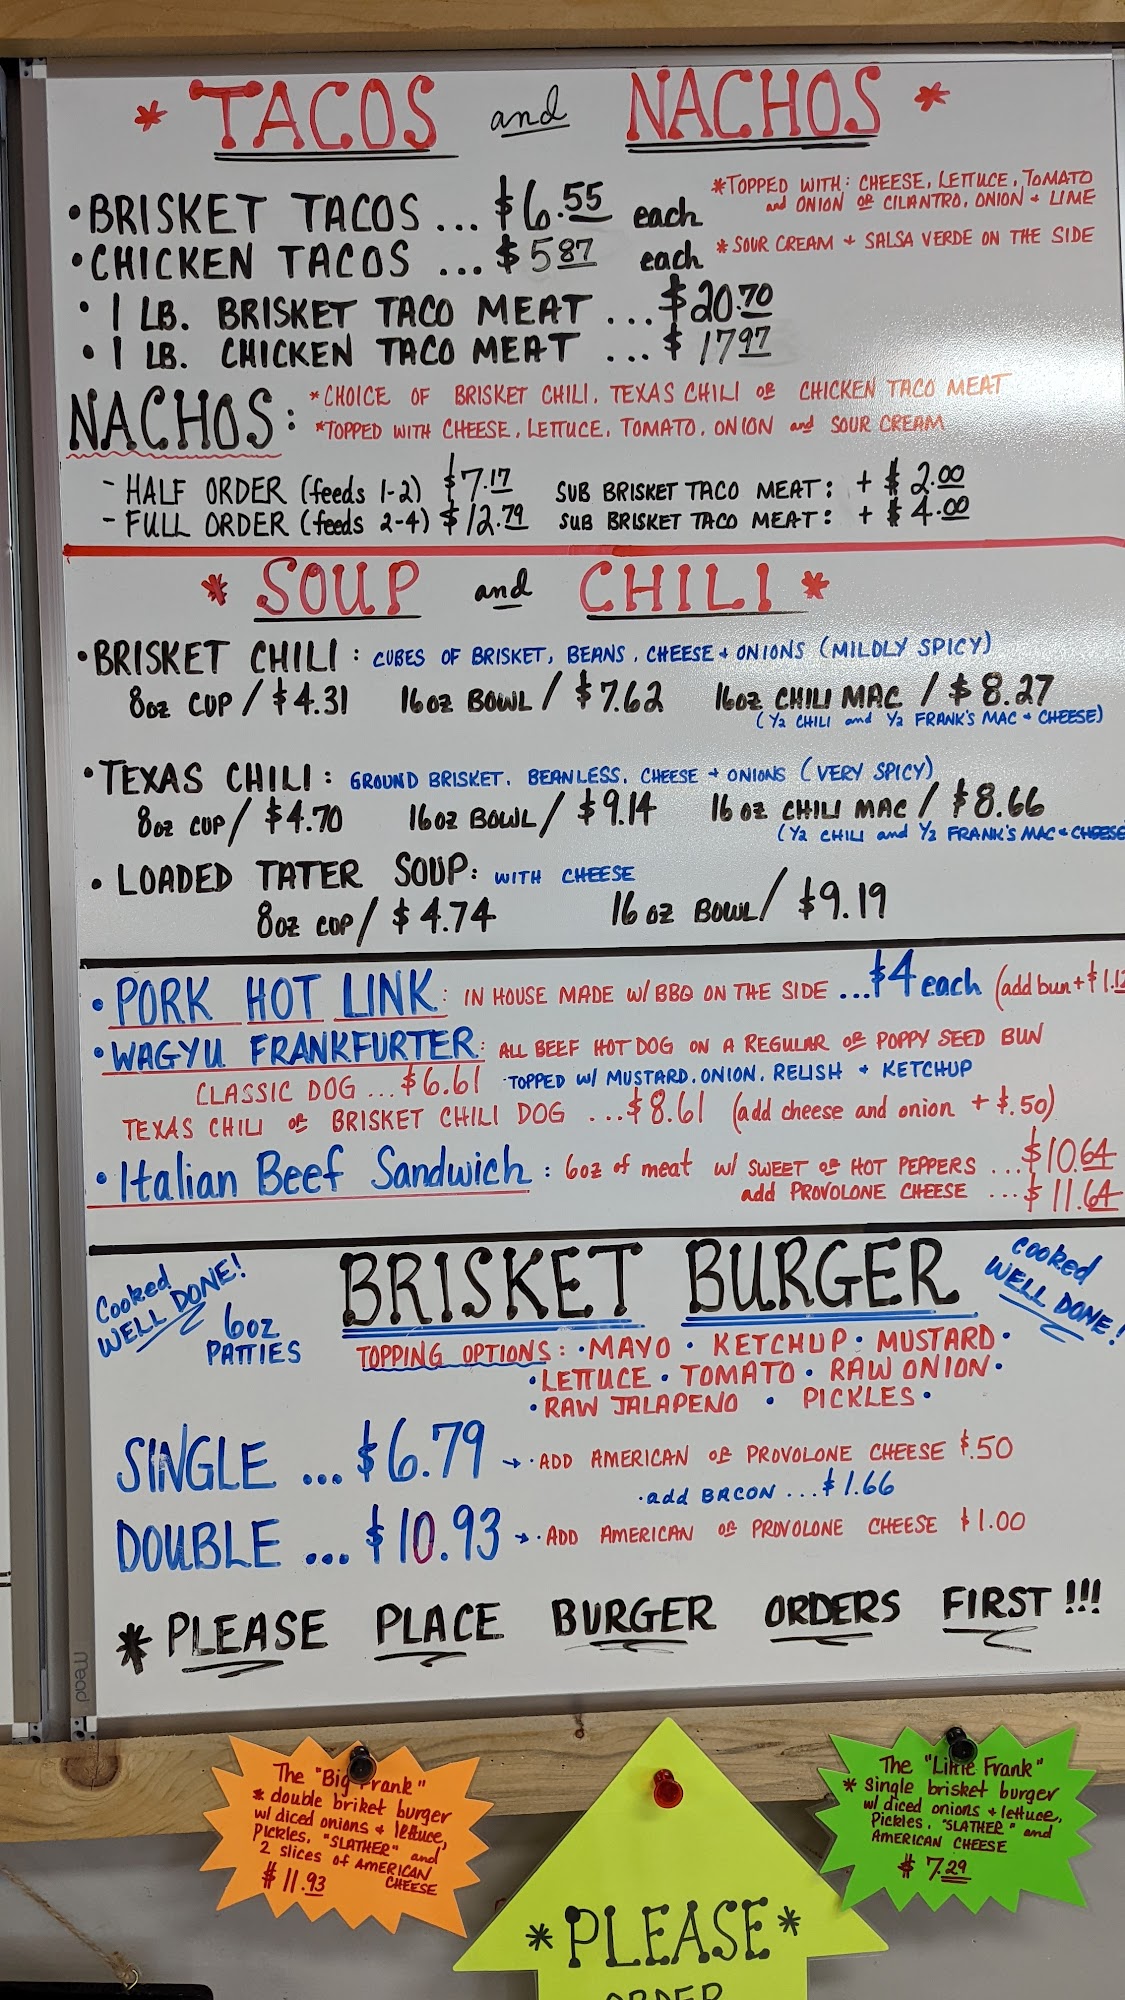 * TACOS and NACHOS *
• BRISKET TACOS ... $6.55 each
*TOPPED WITH: CHEESE, LETTUCE, TOMATO
and ONION OR CILANTRO, ONION + LIME
• CHICKEN TACOS ... $5.87 each
* SOUR CREAM + SALSA VERDE ON THE SIDE
• 1 LB. BRISKET TACO MEAT ... $20.70
• 1 LB. CHICKEN TACO MEAT ... $17.97
NACHOS:
*CHOICE OF BRISKET CHILI, TEXAS CHILI OR CHICKEN TACO MEAT
*TOPPED WITH CHEESE, LETTUCE, TOMATO, ONION and SOUR CREAM
- HALF ORDER (feeds 1-2) $7.17 SUB BRISKET TACO MEAT: + $2.00
- FULL ORDER (feeds 2-4) $12.79 SUB BRISKET TACO MEAT: + $4.00
* SOUP and CHILI *
• BRISKET CHILI: CUBES OF BRISKET, BEANS, CHEESE + ONIONS (MILDLY SPICY)
8oz CUP / $4.31 16oz BOWL / $7.62 16oz CHILI MAC / $8.27
(1/2 CHILI and 1/2 FRANK'S MAC + CHEESE)
• TEXAS CHILI: GROUND BRISKET, BEANLESS, CHEESE + ONIONS (VERY SPICY)
8oz CUP / $4.70 16oz BOWL / $9.14 16oz CHILI MAC / $8.66
(1/2 CHILI and 1/2 FRANK'S MAC + CHEESE
• LOADED TATER SOUP: WITH CHEESE
8oz CUP / $4.74 16oz BOWL / $9.19
• PORK HOT LINK: IN HOUSE MADE W/ BBQ ON THE SIDE ... $4 each (add bun + $1.12
• WAGYU FRANKFURTER: ALL BEEF HOT DOG ON A REGULAR OR POPPY SEED BUN
CLASSIC DOG ... $6.61 • TOPPED W/ MUSTARD, ONION, RELISH + KETCHUP
TEXAS CHILI OR BRISKET CHILI DOG ... $8.61 (add cheese and onion + $.50)
• Italian Beef Sandwich: 6oz of meat w/ SWEET OR HOT PEPPERS ... $10.64
add PROVOLONE CHEESE ... $11.64
Cooked WELL DONE!
BRISKET BURGER
Cooked WELL DONE!
6oz PATTIES
TOPPING OPTIONS: • MAYO • KETCHUP • MUSTARD •
• LETTUCE • TOMATO • RAW ONION •
• RAW JALAPENO • PICKLES •
SINGLE ... $6.79 → • ADD AMERICAN OR PROVOLONE CHEESE $.50
• add BACON ... $1.66
DOUBLE ... $10.93 → • ADD AMERICAN OR PROVOLONE CHEESE $1.00
* PLEASE PLACE BURGER ORDERS FIRST!!!
Mead
The "Big Frank"
* double briket burger
w/ diced onions + lettuce,
Pickles, "SLATHER" and
2 slices of AMERICAN
CHEESE
$11.93
*PLEASE*
ORDER
The "Little Frank"
* single brisket burger
w/ diced onions + lettuce,
Pickles, "SLATHER" and
AMERICAN CHEESE
$7.29